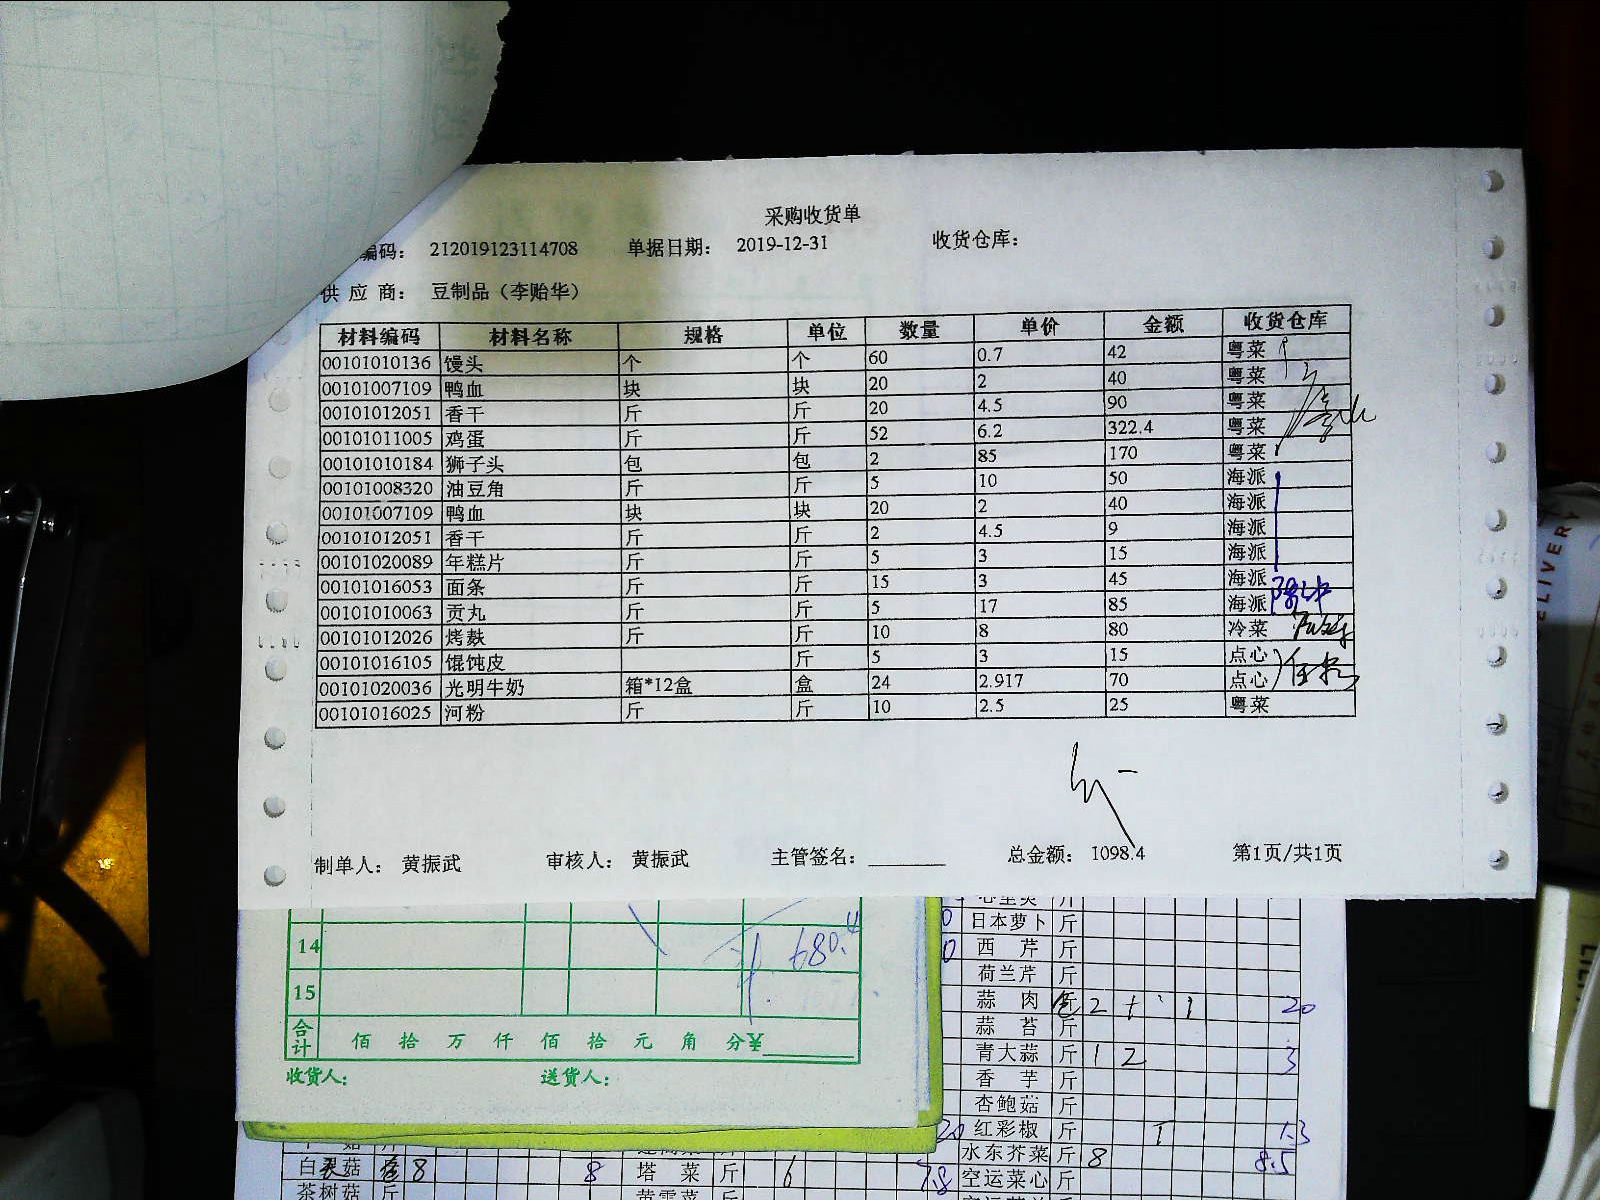 采购收货单
编码： 212019123114708 单据日期： 2019-12-31 收货仓库：
供 应 商： 豆制品（李贻华）
材料编码 材料名称 规格 单位 数量 单价 金额 收货仓库
00101010136 馒头 个 个 60 0.7 42 粤菜
00101007109 鸭血 块 块 20 2 40 粤菜
00101012051 香干 斤 斤 20 4.5 90 粤菜
00101011005 鸡蛋 斤 斤 52 6.2 322.4 粤菜
00101010184 狮子头 包 包 2 85 170 粤菜
00101008320 油豆角 斤 斤 5 10 50 海派
00101007109 鸭血 块 块 20 2 40 海派
00101012051 香干 斤 斤 2 4.5 9 海派
00101020089 年糕片 斤 斤 5 3 15 海派
00101016053 面条 斤 斤 15 3 45 海派
00101010063 贡丸 斤 斤 5 17 85 海派
00101012026 烤麸 斤 斤 10 8 80 冷菜
00101016105 馄饨皮 斤 5 3 15 点心
00101020036 光明牛奶 箱*12盒 盒 24 2.917 70 点心
00101016025 河粉 斤 斤 10 2.5 25 粤菜
制单人： 黄振武 审核人： 黄振武 主管签名： 总金额： 1098.4 第1页/共1页
14 680.4
15
合计 佰 拾 万 仟 佰 拾 元 角 分¥
收货人： 送货人：
日本萝卜 斤
西 芹 斤
荷兰芹 斤
蒜 肉 2 1 20
蒜 苔 斤
青大蒜 斤 1 2 3
香 芋 斤
杏鲍菇 斤
20 红彩椒 斤 1 1.3
水东芥菜 斤 8 8.5
白 菇 8 8 塔 菜 斤 6 7.8 空运菜心 斤
茶树菇 斤
DELIVERY